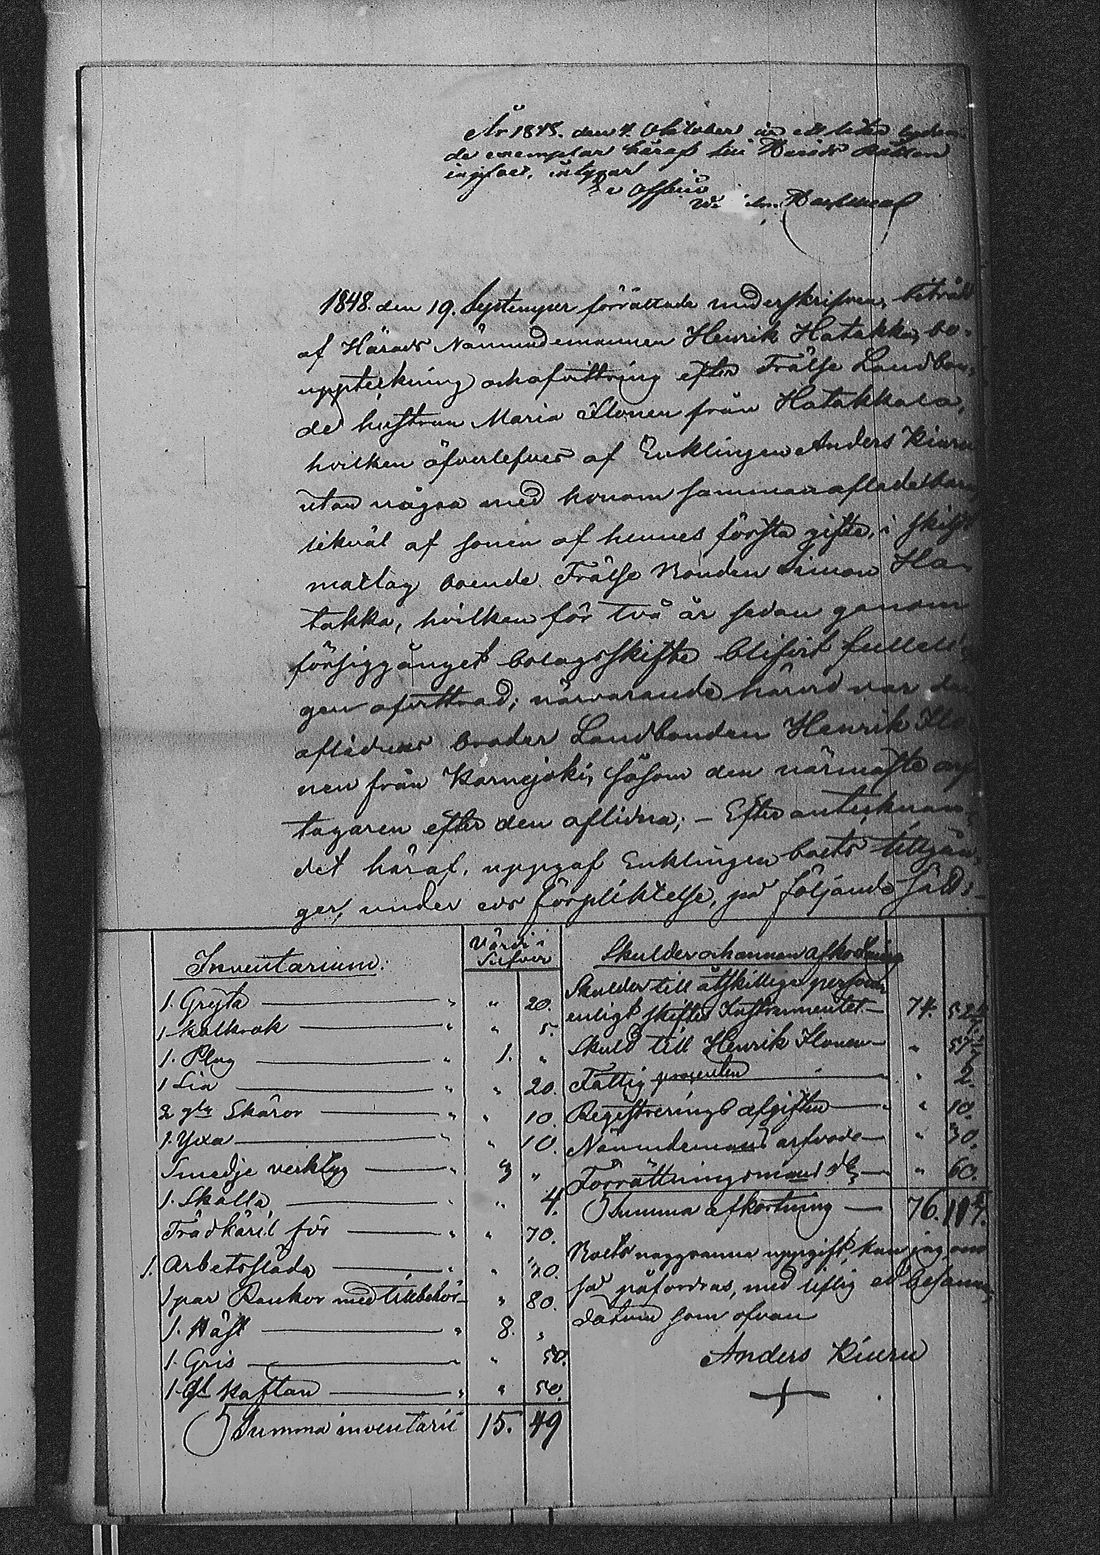 År 1848. den 4. Oktober är ett lika lydan-
de exemplar häraf till Härads Rätten
ingifvet, intygar
Ex Officio
1848. den 19. September förrättade underskrifven, biträdd
af Härads Nämndemannen Henrik Hatakka, bo-
uppteckning och afvittring efter Frälse Landbon-
de hustrun Maria Ilonen från Hatakkala,
hvilken öfverlefves af Enklingen Anders Kiuru
utan några med honom sammanaflade barn
likväl af sonen af hennes första gifte, i skift
matlag boende Frälse Bonden Simon Ha-
takka, hvilken för två år sedan genom
försiggånget bolagsskifte blifvit fulleli-
gen afvittrad; närvarande härvid var den
aflidnes broder Landbonden Henrik Ilo-
nen från Kornejoki, såsom den närmaste arf-
tagaren efter den aflidna; – Efter antecknan-
det häraf, uppgaf Enklingen boets tillgån-
gar, under eds förpliktelse, på följande sätt:
Inventarium: Värde i Silfver
1. Gryta " 20.
1. Kalkvak " 5.
1. Plog 1. "
1 Lia " 20.
2 gla Skäror " 10.
1. Yxa " 10.
Smedje verktyg 3 "
1. Skålla " 4.
Trädkäril för " 70.
1. Arbetssläda " 30.
1 par Rankor med tillbehör " 80.
1. Häst 8. "
1. Gris " 50.
1. gl Kaftan " 50.
Summa inventarii 15. 49
Skulder och annan afkortning
Skulder till åtskillige personer
enligt skiftes Instrumentet 74.
Skuld till Henrik Ilonen "
Fattig procenten " 2.
Registrerings afgiften " 10.
Nämndemans arfvode " 30.
Förrättningsmans do " 60.
Summa afkortning 76.
Boets noggranna uppgift, kan jag, om
så påfordras, med liflig ed besanna,
datum som ofvan
Anders Kiuru